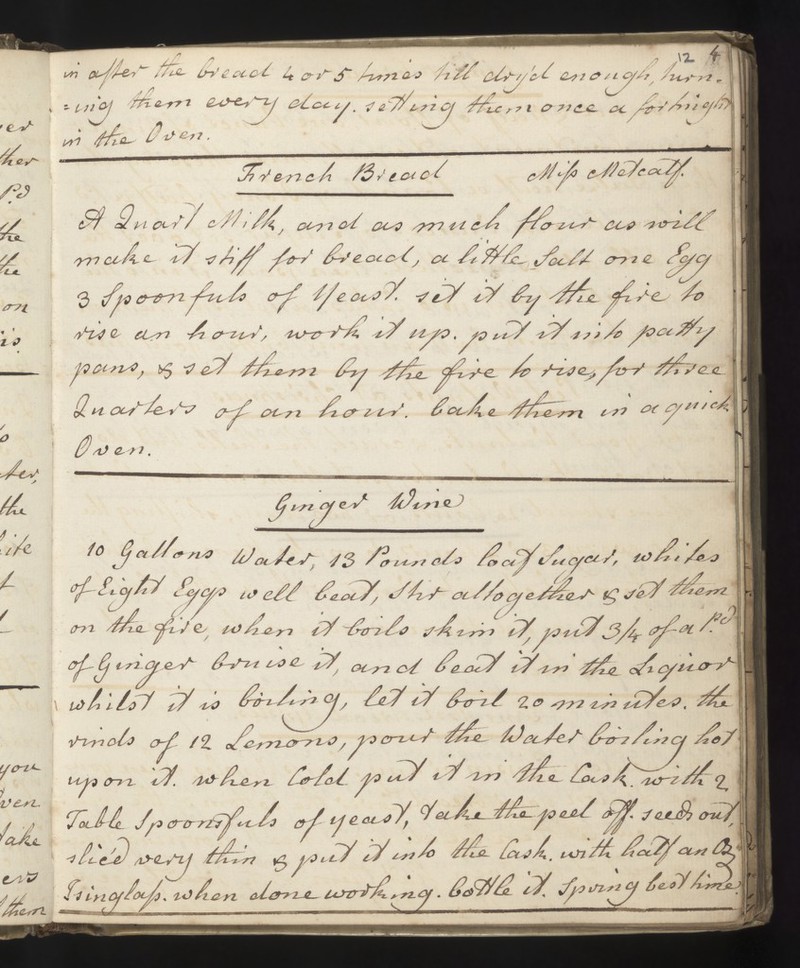 12 4
in after the bread 4 or 5 times till dry'd enough, turn-
=ing them every day. setting them once a fortnight
in the Oven.
French Bread Miss Metcalf.
A Quart Milk, and as much flour as will
make it stiff for bread, a little Salt one Egg
3 Spoonfuls of Yeast. set it by the fire to
rise an hour, work it up. put it into patty
pans, & set them by the fire to rise, for three
Quarters of an hour. bake them in a quick
Oven.
Ginger Wine
10 Gallons Water, 13 Pounds loaf Sugar, whites
of Eight Eggs well beat, stir altogether & set them
on the fire, when it boils skim it, put 3/4 of a Pd
of Ginger bruise it, and beat it in the Liquor
whilst it is boiling, let it boil 20 minutes. the
rinds of 12 Lemons, pour the Water boiling hot
upon it. when Cold put it in the Cask. with 2
Table Spoonsfuls of yeast, take the peel off. seeds out
slice'd very thin & put it into the Cask. with half an Oz
Isinglass. when done working. bottle it. Spring best time.
ther
Pd
the
the
on
is
ter,
the
you
ven
take
ers
them